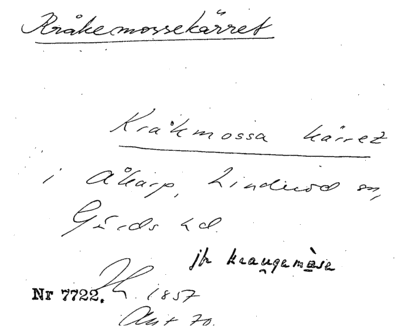 Kråkemossekärret
Kråkmossa kärret
i Åkarp, Linderöd sn,
Gärds hd
jfr kraugemåsa
Nr 7722. 1857
Akt 70.